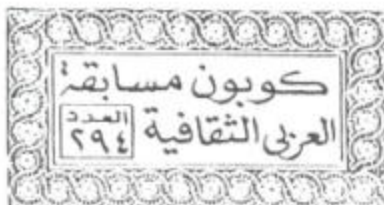 كوبون مسابقة
العربى الثقافية
العدد
٢٩٤